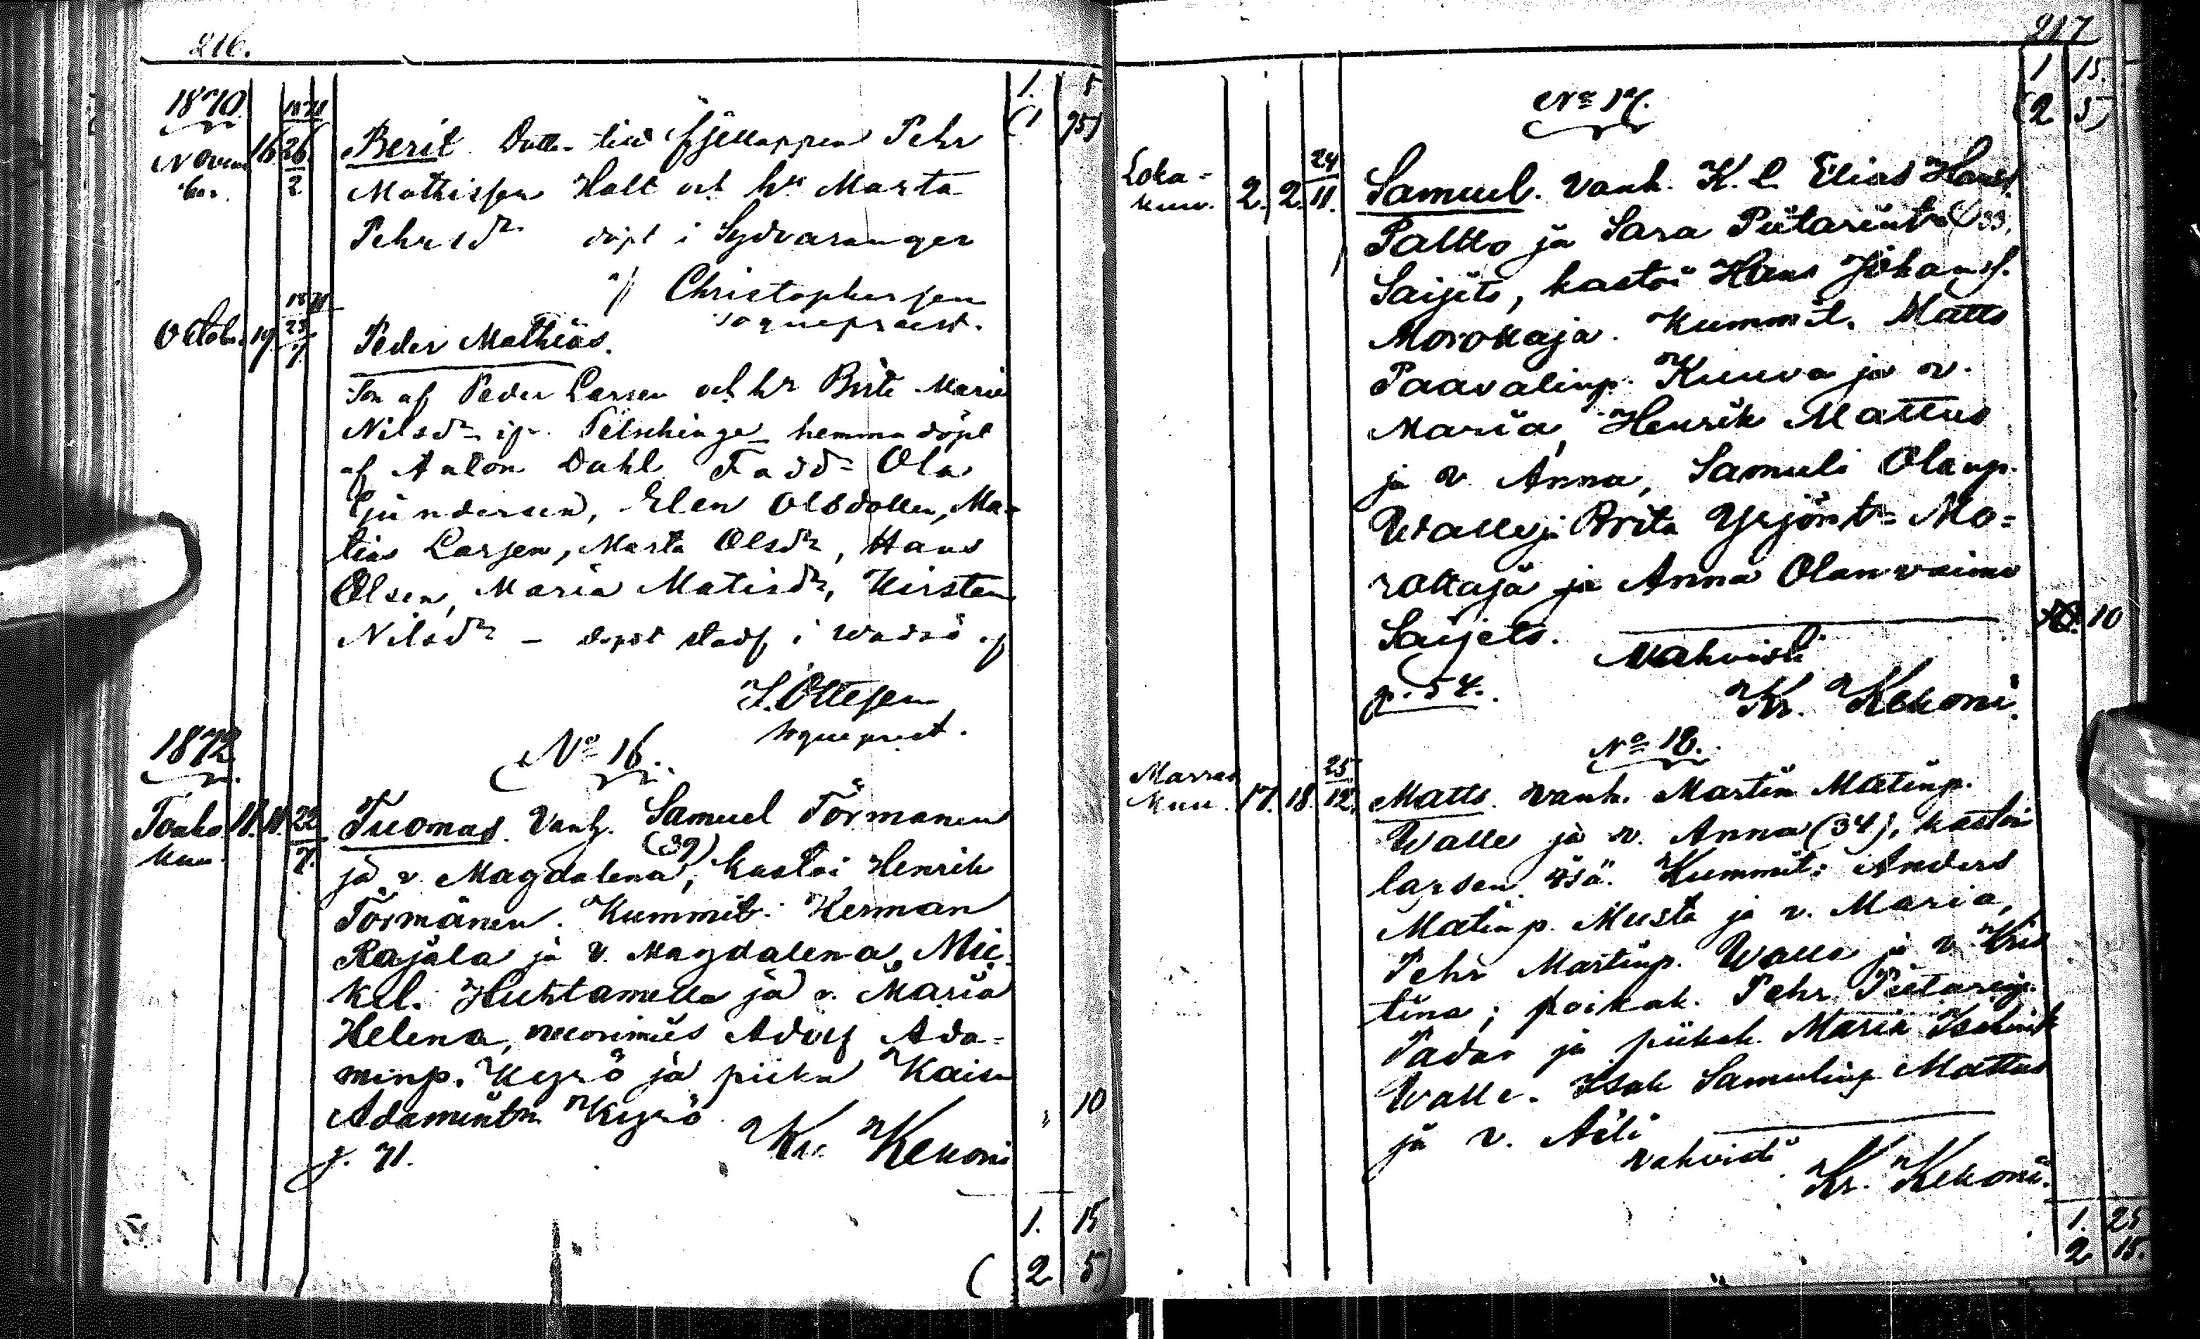 216.
1. 5
1870
1871
(1 95)
Novem
ber.
16 26
2
Berit Dotter till fjellappen Pehr
Mathissen Halt och h. Marta
Pehrsdr döpt i Sydvaranger
Christophersen
sognepræst.
1871
Octob. 19 23
7
Peder Mathias.
Son af Peder Larsen och hr Brite Marie
Nilsdr hemma döpt
af Anton Dahl Fadd. Ola
Gundersen, Elen Olsdotter, Ma-
tias Larsen, Marta Olsdr, Hans
Olsen, Maria Matisdr, Kirsten
Nilsdr - döpt i Wadsö af
J. Ottesen
sognepræst.
1872
No 16.
Touko
kuu.
11. 11. 22
7.
Tuomas. Vanh. Samuel Törmänen
(39)
ja v. Magdalena, kastoi Henrik
Törmänen. Kummit: Herman
Rajala ja v. Magdalena, Mic-
kel. Huhtamella ja v. Maria
Helena, nuorimies Adolf Ada-
minp. Kyrö ja piika Kaisa
Adamintr Kyrö
" 10
Kr. Kekoni
p. 71.
1. 15
(2 5)
217
1 15.
(2 5)
No 17.
Loka-
kuu.
2. 2. 24
11.
Samuel. Vanh. K. l. Elias Hans
Paltto ja Sara Pietarintr (33.
Saijets, kastoi Hans Johanss.
Morottaja. Kummit. Matts
Paavalinp. Kuuva ja v.
Maria, Henrik Mattus
ja v. Anna, Samuli Olanp.
Walle ja Brita Yrjöntr Mo-
rottaja ja Anna Olan vaimo
Saijets.
10
Vahvisti
p. 54.
Kr. Kekoni.
No 18.
Marras
kuu.
17. 18. 25
12.
Matts. Vanh. Martin Matinp.
Walle ja v. Anna (34), kastoi
lapsen isä. Kummit: Anders
Matinp. Musta ja v. Maria,
Pehr Martinp. Walle ja v. Kris
tina; poikak. Pehr Pietarinp.
Padar ja piikak. Maria Isakintr
Walle. Isak Samulinp. Mattus
ja v. Aili
vahvisti
Kr. Kekoni.
1. 25
2 15.